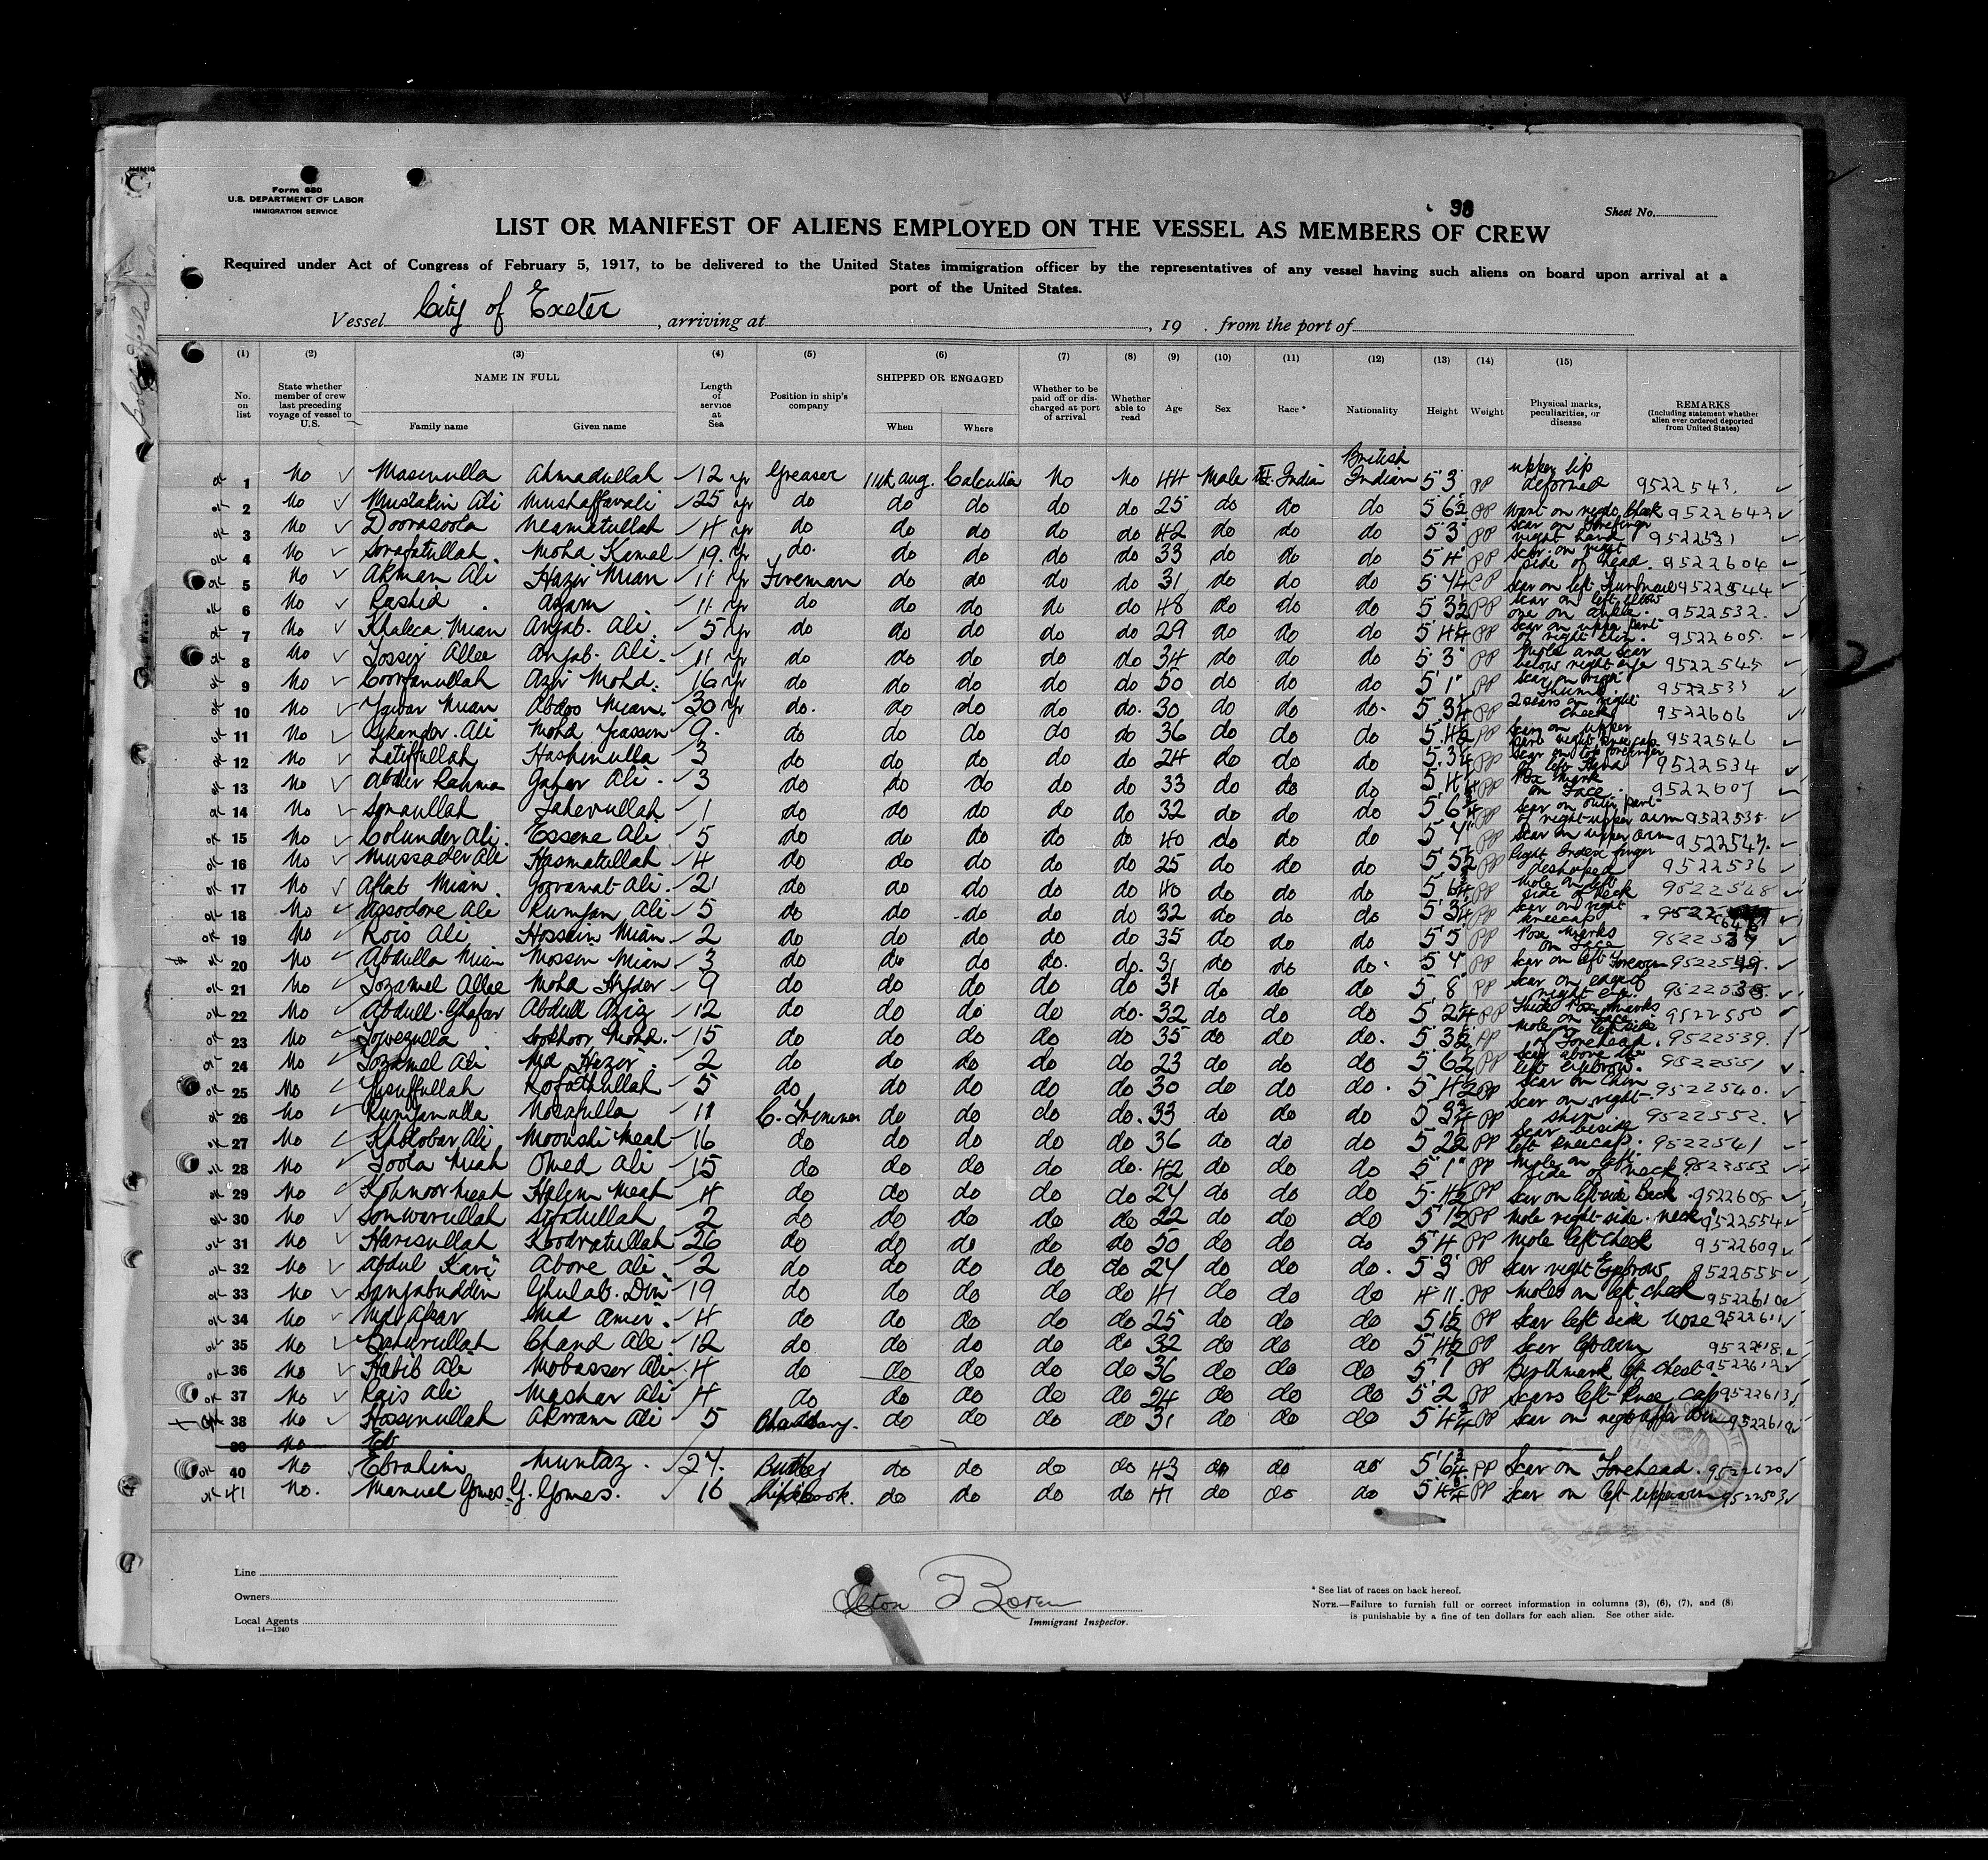 Form 680
U.S. DEPARTMENT OF LABOR
IMMIGRATION SERVICE
38
Sheet No.
LIST OR MANIFEST OF ALIENS EMPLOYED ON THE VESSEL AS MEMBERS OF CREW
Required under Act of Congress of February 5, 1917, to be delivered to the United States immigration officer by the representatives of any vessel having such aliens on board upon arrival at a
port of the United States.
Vessel City of Exeter, arriving at , 19 . from the port of
(1) (2) (3) (4) (5) (6) (7) (8) (9) (10) (11) (12) (13) (14) (15)
No. on list
State whether member of crew last preceding voyage of vessel to U.S.
NAME IN FULL
Family name
Given name
Length of service at Sea
Position in ship's company
SHIPPED OR ENGAGED
When
Where
Whether to be paid off or discharged at port of arrival
Whether able to read
Age
Sex
Race *
Nationality
Height
Weight
Physical marks, peculiarities, or disease
REMARKS
(Including statement whether alien ever ordered deported from United States)
1 No Ahmadullah 12 yr Greaser 11th Aug. Calcutta No No 44 Male Indian British Indian 5 3 PP upper lip deformed 9522543.
2 No Mustakin Ali Mushaffarali 25 yr do do do do do 25 do do do 5 6½ PP 9522642
3 No Neamatullah 4 yr do do do do do 42 do do do 5 3 PP Scar on Forefinger right hand 9522531
4 No Sorafatullah Moha Kamal 19 yr do. do do do do 33 do do do 5 4 PP Scar on right side of head. 9522604
5 No Akman Ali Hazir Mian 11 yr Fireman do do do do 31 do do do 5 PP 9522544
6 No Rashid Azam 11 yr do do do do do 48 do do do 5 3½ PP Scar on left elbow one on ankle. 9522532.
7 No Khalica Mian Anjab. Ali. 5 yr do do do do do 29 do do do 5 4¼ PP Scar on upper part of right shin. 9522605.
8 No Anjab. Ali. 11 yr do do do do do 34 do do do 5 3 PP Mole and scar below right eye 9522545
9 No Azir Mohd. 16 yr do do do do do 50 do do do 5 1 PP Scar on right thumb. 9522533
10 No Abdoo Mian. 30 yr do. do do do do. 30 do do do. 5 3¼ PP 2 scars on right cheek 9522606
11 No Sikandar. Ali Mohd Yassin 9. do do do do do 36 do do do 5.4½ PP Scar on upper part right knee cap. 9522546
12 No Latiffullah Hashinulla 3 do do do do do 24 do do do PP Scar on top forefinger of left Hand 9522534
13 No Abdur Rahma Gafer Ali. 3 do do do do do 33 do do do PP Pox Mark on Face. 9522607
14 No Sonaullah Jahevullah 1 do do do do do 32 do do do PP Scar on outer part of right upper arm 9522535.
15 No Colunder Ali. Essene Ali 5 do do do do do 40 do do do PP Scar on upper arm 9522547.
16 No Mussader Ali Hasmatullah 4 do do do do do 25 do do do 5 5½ PP Right Index finger deshaped 9522536
17 No Aftab Mian. 21 do do do do do 40 do do do PP Mole on left side of neck 9522548
18 No Assodore Ali Rumjan Ali 5 do do do do do 32 do do do PP Scar on right kneecap
19 No Rois Ali Hossein Mian. 2 do do do do do 35 do do do 5 5 PP Pox marks on Face
20 No Abdulla Mian Mossin Mian 3 do do do do. do. 31 do do do. 5 4 PP Scar on left Forearm 9522549.
21 No Tozamel Allee Moha Hyder 9 do do do do do 31 do do do 5 8 PP
22 No Abdull. Ghafar Abdull Aziz 12 do do do do do. 32 do do do PP 9522550
23 No 15 do do do do do 35 do do do. 5 3½ PP Mole on left side of Forehead. 9522539.
24 No Tozamel Ali Md Hazir 2 do do do do do 23 do do do 5 6½ PP Scar above the left eyebrow. 9522551
25 No Yusuffullah Rofathullah 5 do do do do do 30 do do do. 5 4½ PP Scar on Chin 9522540.
26 No Rumjanulla Nosafulla 11 C. Trimmer do do do do. 33 do do do 5 3¾ PP Scar on right shin 9522552.
27 No Khotobar Ali Moonshi Meah 16 do do do do do 36 do do do 5 2½ PP Scar beside left kneecap. 9522541
28 No Toola Miah Omed Ali 15 do do do do do. 42 do do do 5 1 PP Mole on left side of neck 9522553
29 No Kohnoor Meah Halim Meah 4 do do do do do 24 do do do 5.4½ PP Scar on left side Back. 9522608
30 No Sonwarullah Sifatullah 2 do do do do do 22 do do do 5 1½ PP Mole right side. neck 9522554
31 No Harisullah Koodratullah 26 do do do do do 50 do do do 5 4 PP Mole left cheek 9522609
32 No Abdul Kari Abone Ali. 2 do do do do do 24 do do do. 5 3 PP Scar right Eyebrow 9522555
33 No Sanjabuddin Ghulab. Din 19 do do do do do 41 do do do 4 11. PP Moles on left cheek 9522610
34 No Md Afsar Md Amir. 4 do do do do do 25 do do do 5 1½ PP Scar left side Nose. 9522611
35 No Chand Ali 12 do do do do do 32 do do do 5 4½ PP
36 No Habib Ali Mobasser Ali 4 do do do do do 36 do do do 5 1 PP Birthmark lft Chest 9522612
37 No Rais Ali Mashar Ali 4 do do do do do 24 do do do 5 2 PP Scars left knee cap 9522613
38 No Hassinullah Akram Ali 5 Bhandary. do do do do 31 do do do 5 4¾ PP 9522619
39 No Eb
40 No Ebrahim Muntaz. 27. Butler do do do do 43 do do do 5'6¾ PP Scar on Forehead. 9522620
41 No. Manuel Gomes G. Gomes. 16 do do do do 41 do do do PP Scar on left upperarm 9522503
Line
Owners
Local Agents
14—1240
Immigrant Inspector.
* See list of races on back hereof.
NOTE.—Failure to furnish full or correct information in columns (3), (6), (7), and (8)
is punishable by a fine of ten dollars for each alien. See other side.